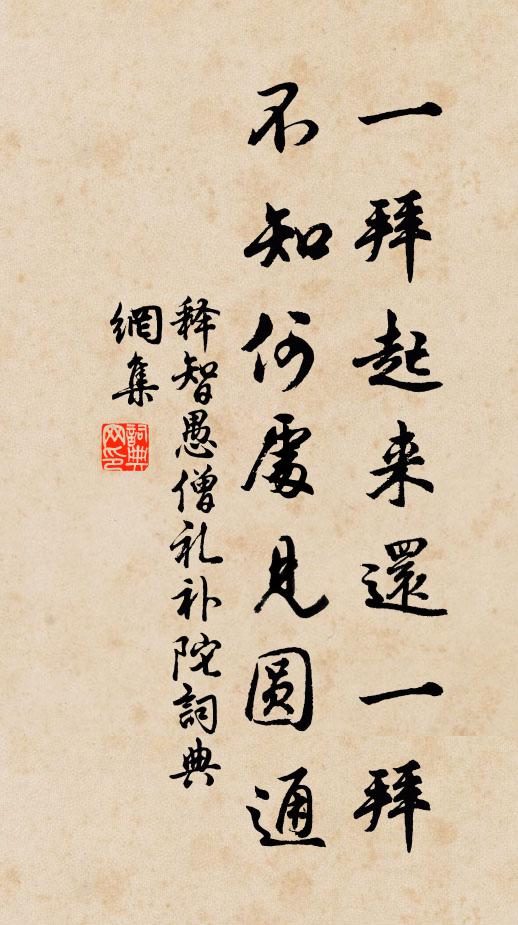 一拜起来還一拜
不知何處見圆通
释智愚僧礼补陀詞典
網集
詞典
网印